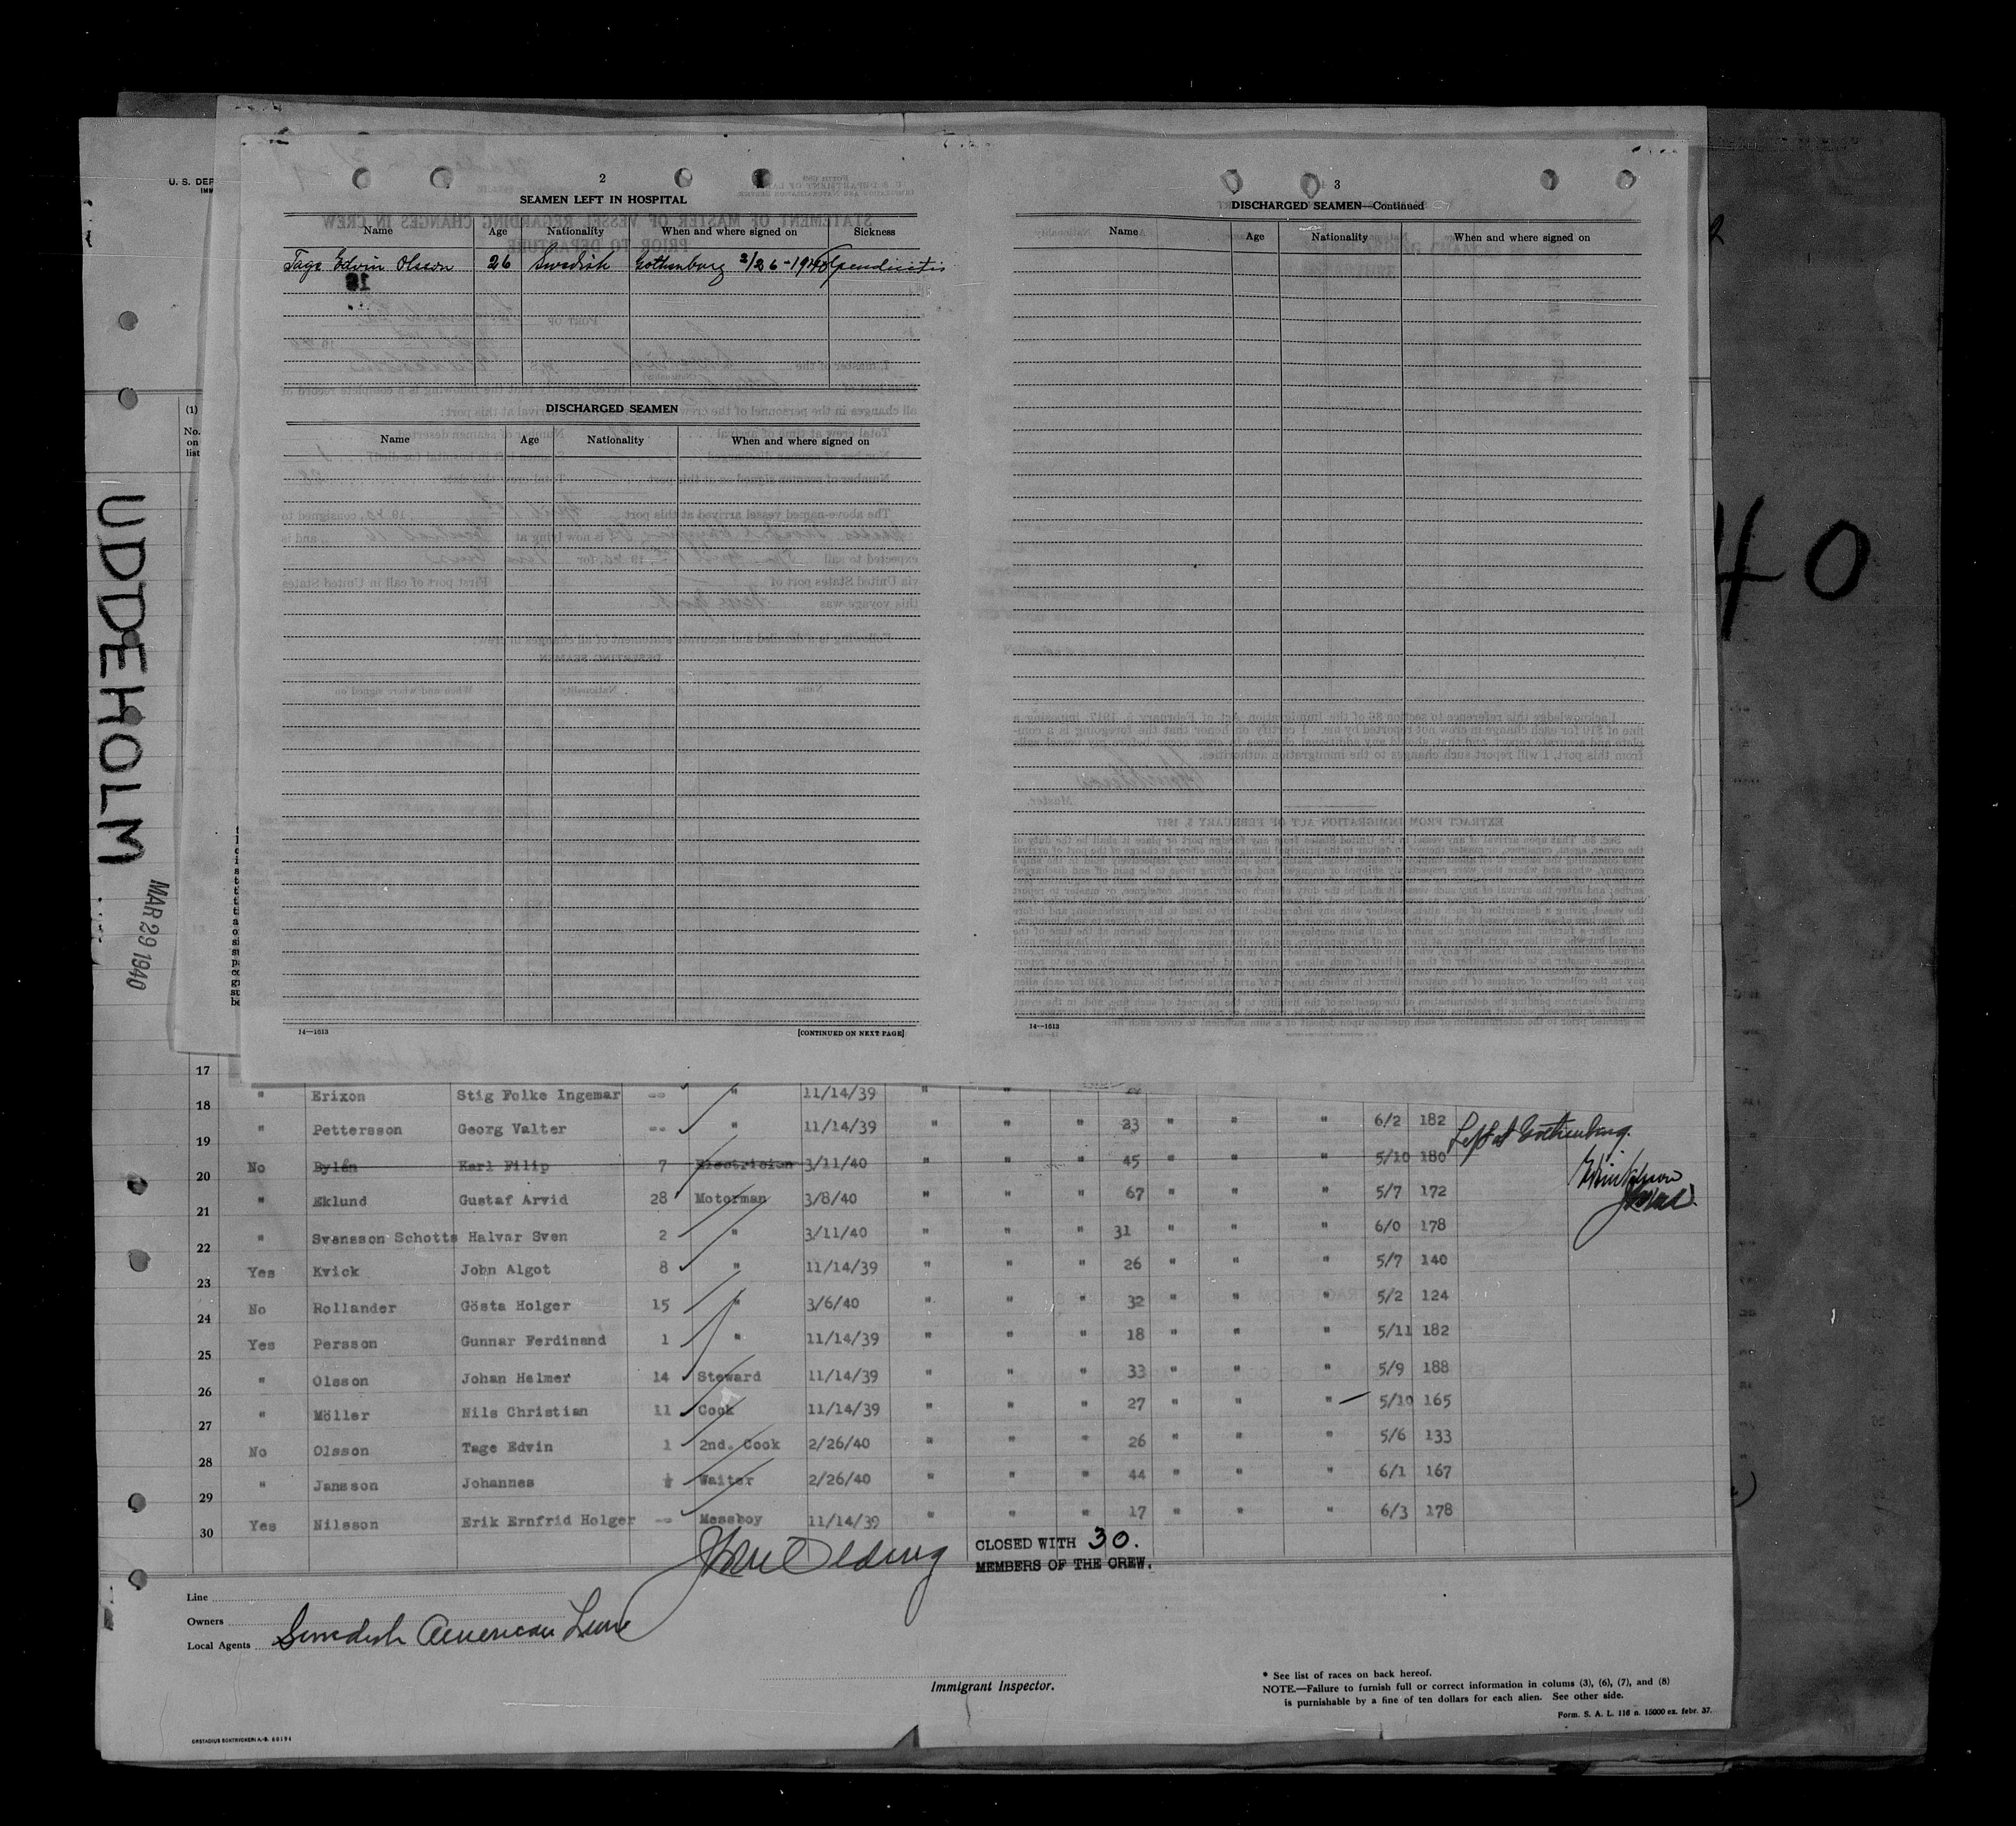 U. S. DEP
IMM
2
SEAMEN LEFT IN HOSPITAL
Name Age Nationality When and where signed on Sickness
Tage Edvin Olsson 26 Swedish Gothenburg 2/26-1940 Apendicitis
DISCHARGED SEAMEN
Name Age Nationality When and where signed on
14—1613 [CONTINUED ON NEXT PAGE]
3
DISCHARGED SEAMEN—Continued
Name Age Nationality When and where signed on
14—1613
(1)
No.
on
list
UDDEHOLM
MAR 29 1940
40
17
" Erixon Stig Folke Ingemar -- " 11/14/39 " "
18
" Pettersson Georg Valter -- " 11/14/39 " " " 23 " " " 6/2 182
19
Left at Gothenburg.
No Bylén Karl Filip 7 Electrician 3/11/40 " " " 45 " " " 5/10 180
20
" Eklund Gustaf Arvid 28 Motorman 3/8/40 " " " 67 " " " 5/7 172
21
" Svensson Schotts Halvar Sven 2 " 3/11/40 " " " 31 " " " 6/0 178
22
Yes Kvick John Algot 8 " 11/14/39 " " " 26 " " " 5/7 140
23
No Rollander Gösta Holger 15 " 3/6/40 " " " 32 " " " 5/2 124
24
Yes Persson Gunnar Ferdinand 1 " 11/14/39 " " " 18 " " " 5/11 182
25
" Olsson Johan Helmer 14 Steward 11/14/39 " " " 33 " " " 5/9 188
26
" Möller Nils Christian 11 Cook 11/14/39 " " " 27 " " " 5/10 165
27
No Olsson Tage Edvin 1 2nd. Cook 2/26/40 " " " 26 " " " 5/6 133
28
" Jansson Johannes Waiter 2/26/40 " " " 44 " " " 6/1 167
29
Yes Nilsson Erik Ernfrid Holger -- Messboy 11/14/39 " " " 17 " " " 6/3 178
30
CLOSED WITH 30.
MEMBERS OF THE CREW.
Line
Owners
Local Agents Swedish American Line
Immigrant Inspector.
* See list of races on back hereof.
NOTE.—Failure to furnish full or correct information in colums (3), (6), (7), and (8)
is purnishable by a fine of ten dollars for each alien. See other side.
Form. S. A. L. 116 n. 15000 ex. febr. 37.